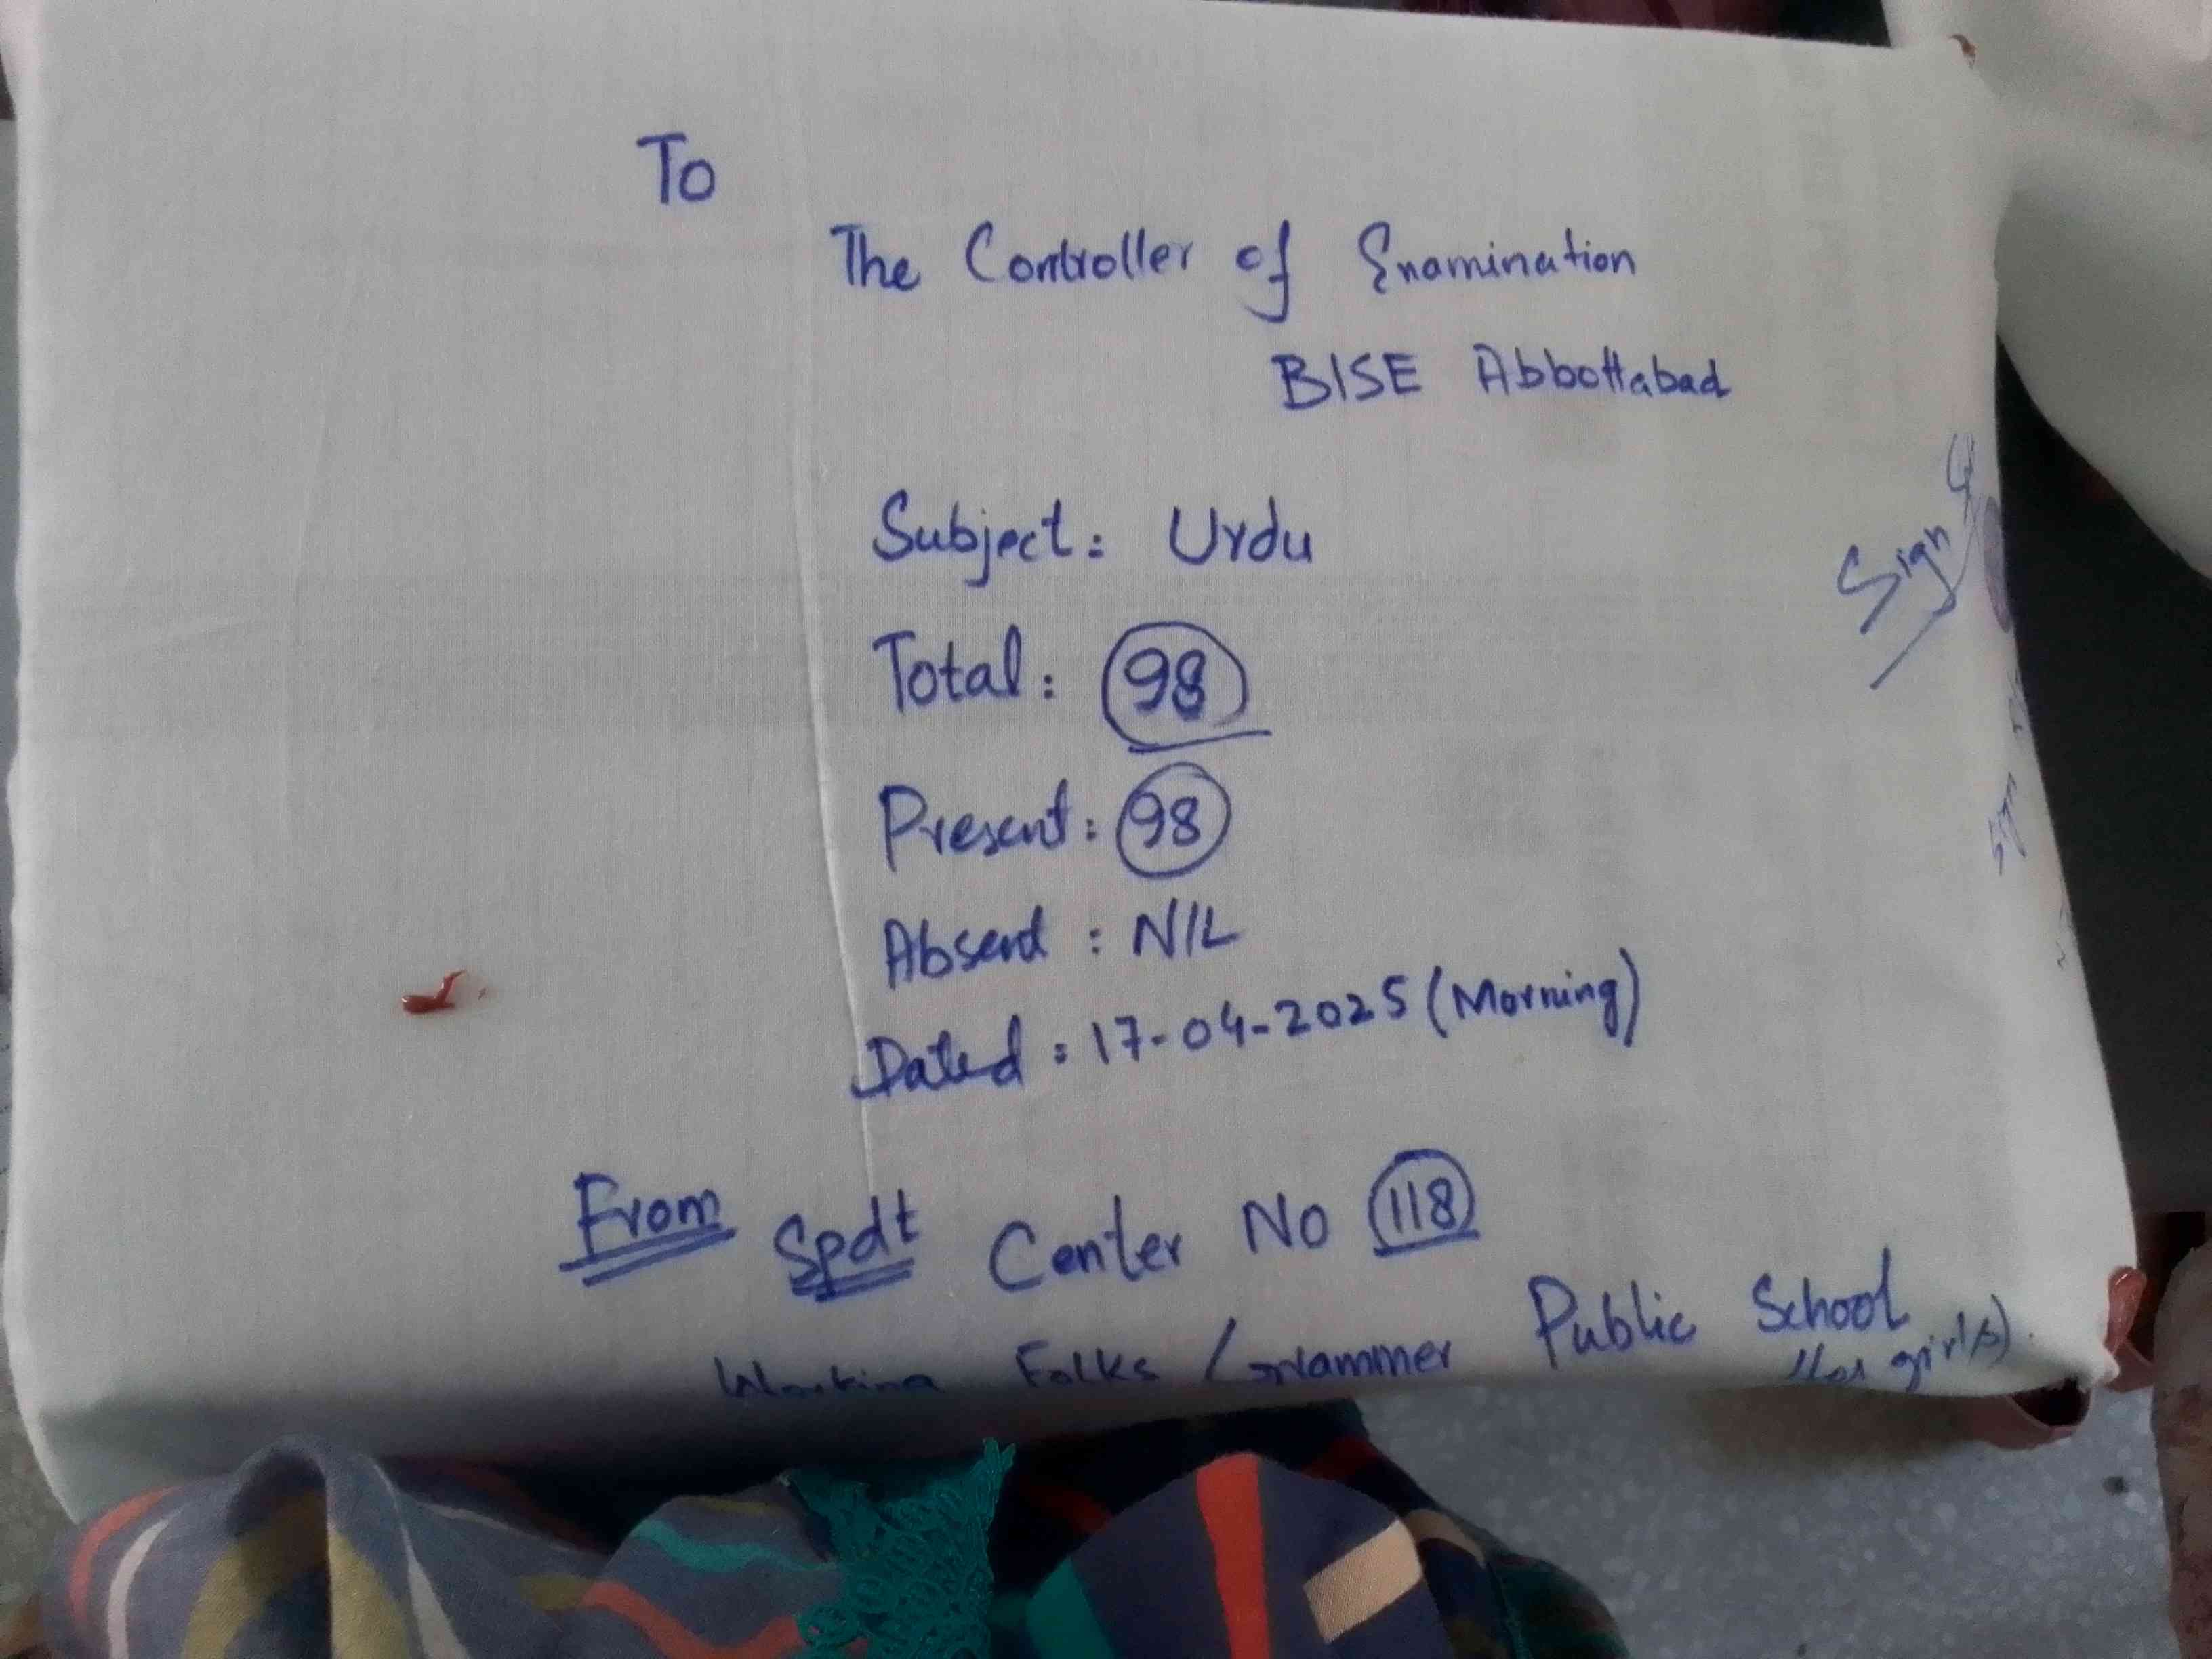 To
The Controller of Examination
BISE Abbottabad
Subject: Urdu
Total: 98
Present: 98
Absent: NIL
Dated: 17-04-2025 (Morning)
From Spdt Center No 118
Working Folks Grammer Public School
(for girls).
Sign
Sign